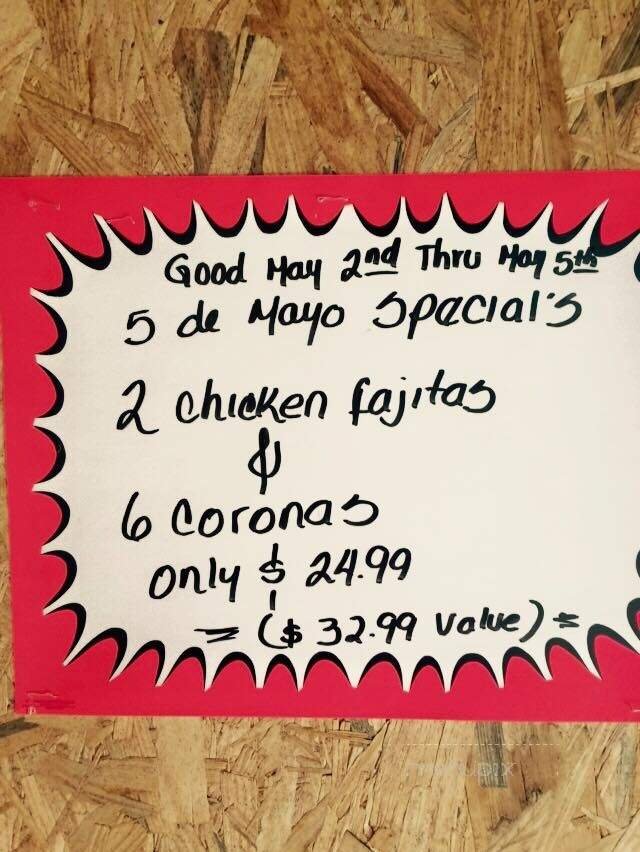 Good May 2nd Thru May 5th
5 de Mayo Special's
2 chicken fajitas
&
6 Coronas
only $ 24.99
= ($ 32.99 value) =